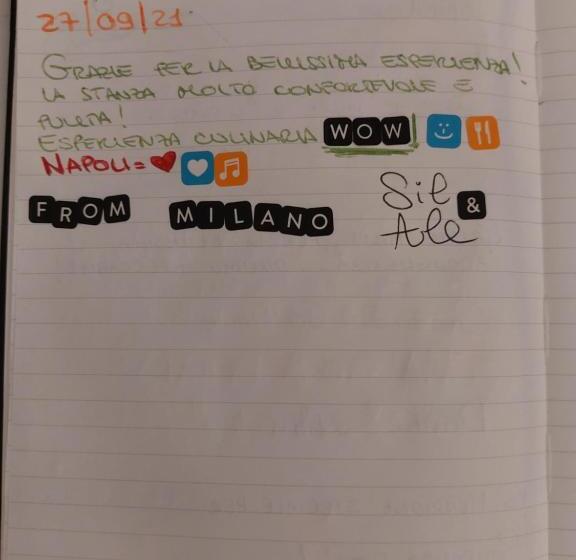 27/09/21
GRAZIE PER LA BELLISSIMA ESPERIENZA!
LA STANZA MOLTO CONFORTEVOLE E
PULITA!
ESPERIENZA CULINARIA WOW!
NAPOLI=❤
FROM MILANO Sil &
Ale